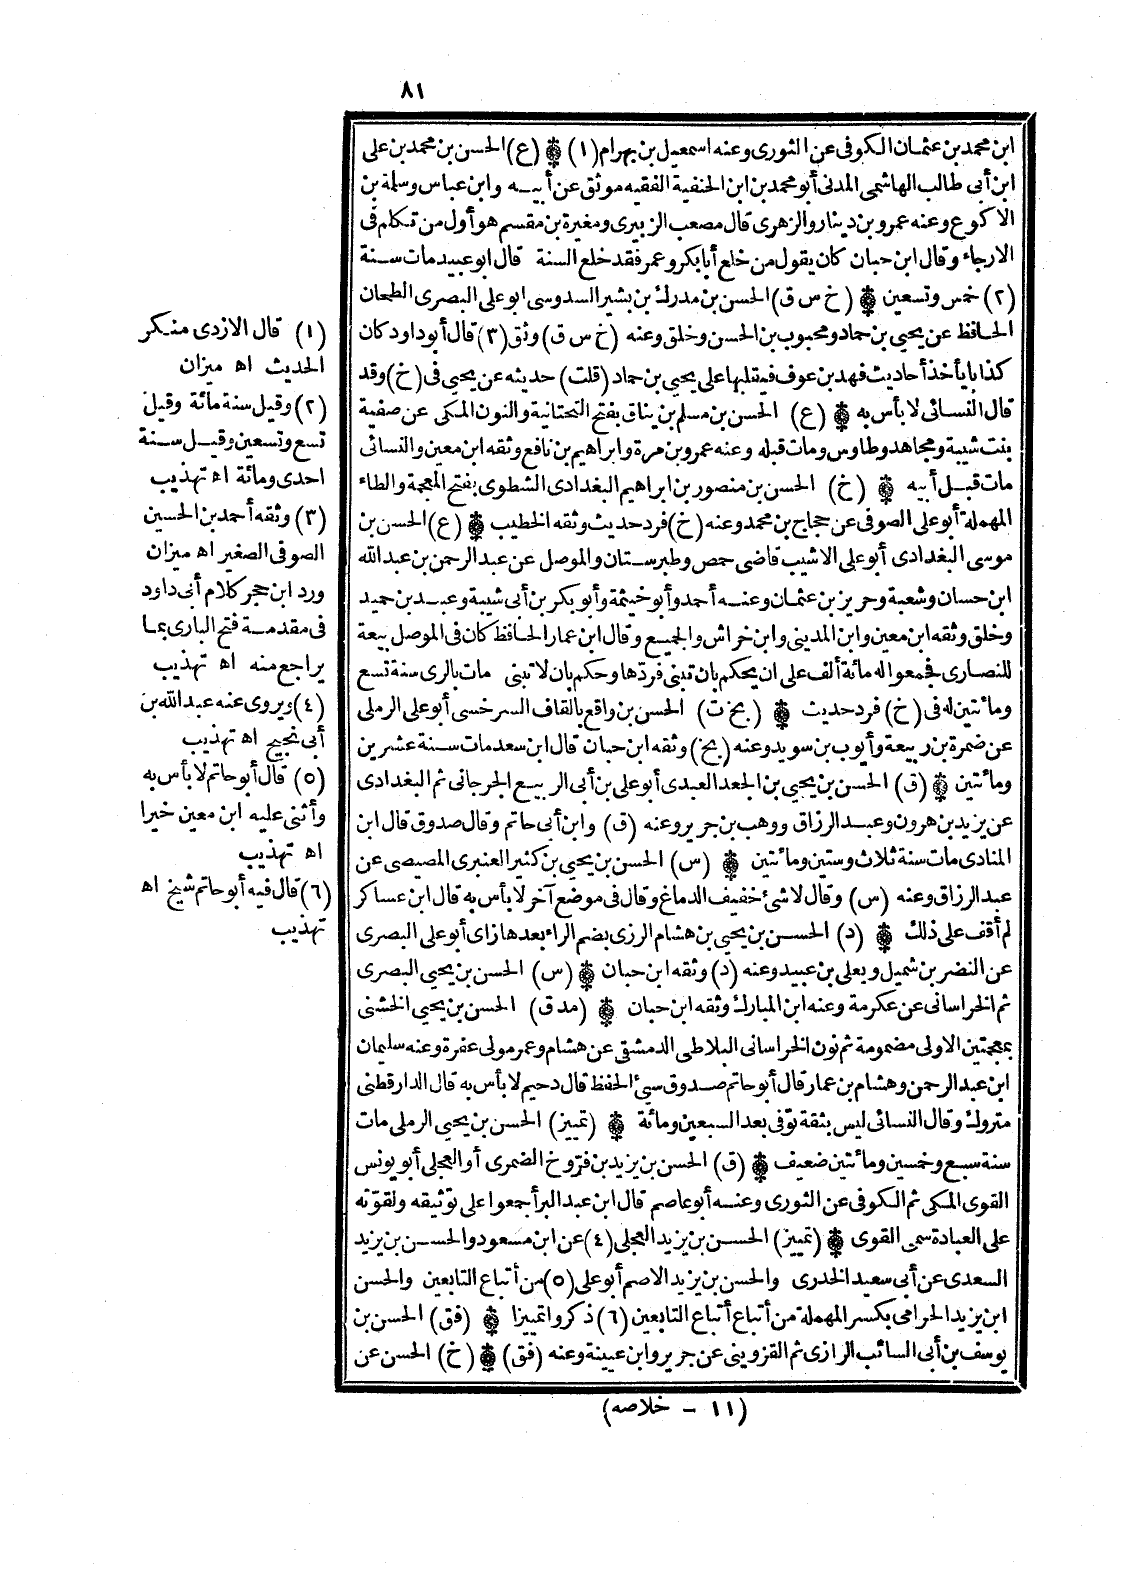 ٨١
ابن محمد بن عثمان الكوفى عن الثورى وعنه اسمعيل بن بهرام (١) ۞ (ع) الحسن بن محمد بن على
ابن أبى طالب الهاشمى المدنى أبو محمد بن ابن الحنفية الفقيه موثق عن أبيـه وابن عباس وسلمة بن
الاكوع وعنه عمرو بن دينار والزهرى قال مصعب الزبيرى ومغيرة بن مقسم هو أول من تكلم فى
الارجاء وقال ابن حبان كان يقول من خلع أبا بكر وعمر فقد خلع السنة قال ابو عبيد مات سنة
(٢) خمس وتسعين ۞ (خ س ق) الحسن بن مدرك بن بشير السدوسى ابو على البصرى الطحان
الحافظ عن يحيى بن حماد ومحبوب بن الحسن وخلق وعنه (خ س ق) وثق (٣) قال أبو داود كان
كذابا يأخذ أحاديث فهد بن عوف فيقلبها على يحيى بن حماد (قلت) حديثه عن يحيى فى (خ) وقد
قال النسائى لا بأس به ۞ (ع) الحسن بن مسلم بن يناق بفتح التحتانية والنون المكى عن صفية
بنت شيبة ومجاهد وطاوس ومات قبله وعنه عمرو بن مرة وابراهيم بن نافع وثقه ابن معين والنسائى
مات قبـل أبيه ۞ (خ) الحسن بن منصور بن ابراهيم البغدادى الشطوى بفتح المعجمة والطاء
المهملة أبو على الصوفى عن حجاج بن محمد وعنه (خ) فرد حديث وثقه الخطيب ۞ (ع) الحسن بن
موسى البغدادى أبو على الاشيب قاضى حمص وطبرستان والموصل عن عبد الرحمن بن عبد الله
ابن حسان وشعبة وحريز بن عثمان وعنـه أحمد وأبو خيثمة وأبو بكر بن أبى شيبة وعبـد بن حميد
وخلق وثقه ابن معين وابن المدينى وابن خراش والجميع وقال ابن عمار الحافظ كان فى الموصل بيعة
للنصارى فجمعوا له مائة ألف على ان يحكم بان تبنى فردها وحكم بان لا تبنى مات بالرى سنة تسع
ومائتين له فى (خ) فرد حديث ۞ (بخ ت) الحسن بن واقع بالقاف السرخسى أبو على الرملى
عن ضمرة بن ربيعة وأيوب بن سويد وعنه (بخ) وثقه ابن حبان قال ابن سعد مات سنة عشرين
ومائتين ۞ (ق) الحسن بن يحيى بن الجعد العبدى أبو على بن أبى الربيع الجرجانى ثم البغدادى
عن يزيد بن هرون وعبـد الرزاق ووهب بن جرير وعنه (ق) وابن أبى حاتم وقال صدوق قال ابن
المنادى مات سنة ثلاث وستين ومائتين ۞ (س) الحسن بن يحيى بن كثير العنبرى المصيصى عن
عبد الرزاق وعنه (س) وقال لا شئ خفيف الدماغ وقال فى موضع آخر لا بأس به قال ابن عساكر
لم أقف على ذلك ۞ (د) الحسـن بن يحيى بن هشام الرزى بضم الراء بعدها زاى أبو على البصرى
عن النضر بن شميل ويعلى بن عبيد وعنه (د) وثقه ابن حبان ۞ (س) الحسن بن يحيى البصرى
ثم الخراسانى عن عكرمة وعنه ابن المبارك وثقه ابن حبان ۞ (مد ق) الحسن بن يحيى الخشنى
بمعجمتين الاولى مضمومة ثم نون الخراسانى البلاطى الدمشقى عن هشام وعمر مولى عفرة وعنه سليمان
ابن عبد الرحمن وهشام بن عمار قال أبو حاتم صـدوق سيئ الحفظ قال دحيم لا بأس به قال الدارقطنى
متروك وقال النسائى ليس بثقة توفى بعد السبعين ومائة ۞ (تمييز) الحسن بن يحيى الرملى مات
سنة سبع وخمسين ومائتين ضعيف ۞ (ق) الحسن بن يزيد بن فروخ الضمرى أو العجلى أبو يونس
القوى المكى ثم الكوفى عن الثورى وعنـه أبو عاصم قال ابن عبد البر أجمعوا على توثيقه ولقوّته
على العبادة سمى القوى ۞ (تمييز) الحسـن بن يزيد العجلى (٤) عن ابن مسعود والحسـن بن يزيد
السعدى عن أبى سعيد الخدرى والحسن بن يزيد الاصم أبو على (٥) من أتباع التابعين والحسن
ابن يزيد الحرامى بكسر المهملة من أتباع أتباع التابعين (٦) ذكروا تمييزا ۞ (فق) الحسن بن
يوسف بن أبى السائب الرازى ثم القزوينى عن جرير وابن عيينة وعنه (فق) ۞ (خ) الحسن عن
(١) قال الازدى منكر
الحديث اه ميزان
(٢) وقيل سنة مائة وقيل
تسع وتسعين وقيـل سـنة
احدى ومائة اه تهذيب
(٣) وثقه أحمد بن الحسين
الصوفى الصغير اه ميزان
ورد ابن حجر كلام أبى داود
فى مقدمـة فتح البارى بمـا
يراجع منه اه تهذيب
(٤) ويروى عنه عبد الله بن
أبى نجيح اه تهذيب
(٥) قال أبو حاتم لا بأس به
وأثنى عليه ابن معين خيرا
اه تهذيب
(٦) قال فيه أبو حاتم شيخ اه
تهذيب
(١١ - خلاصه)